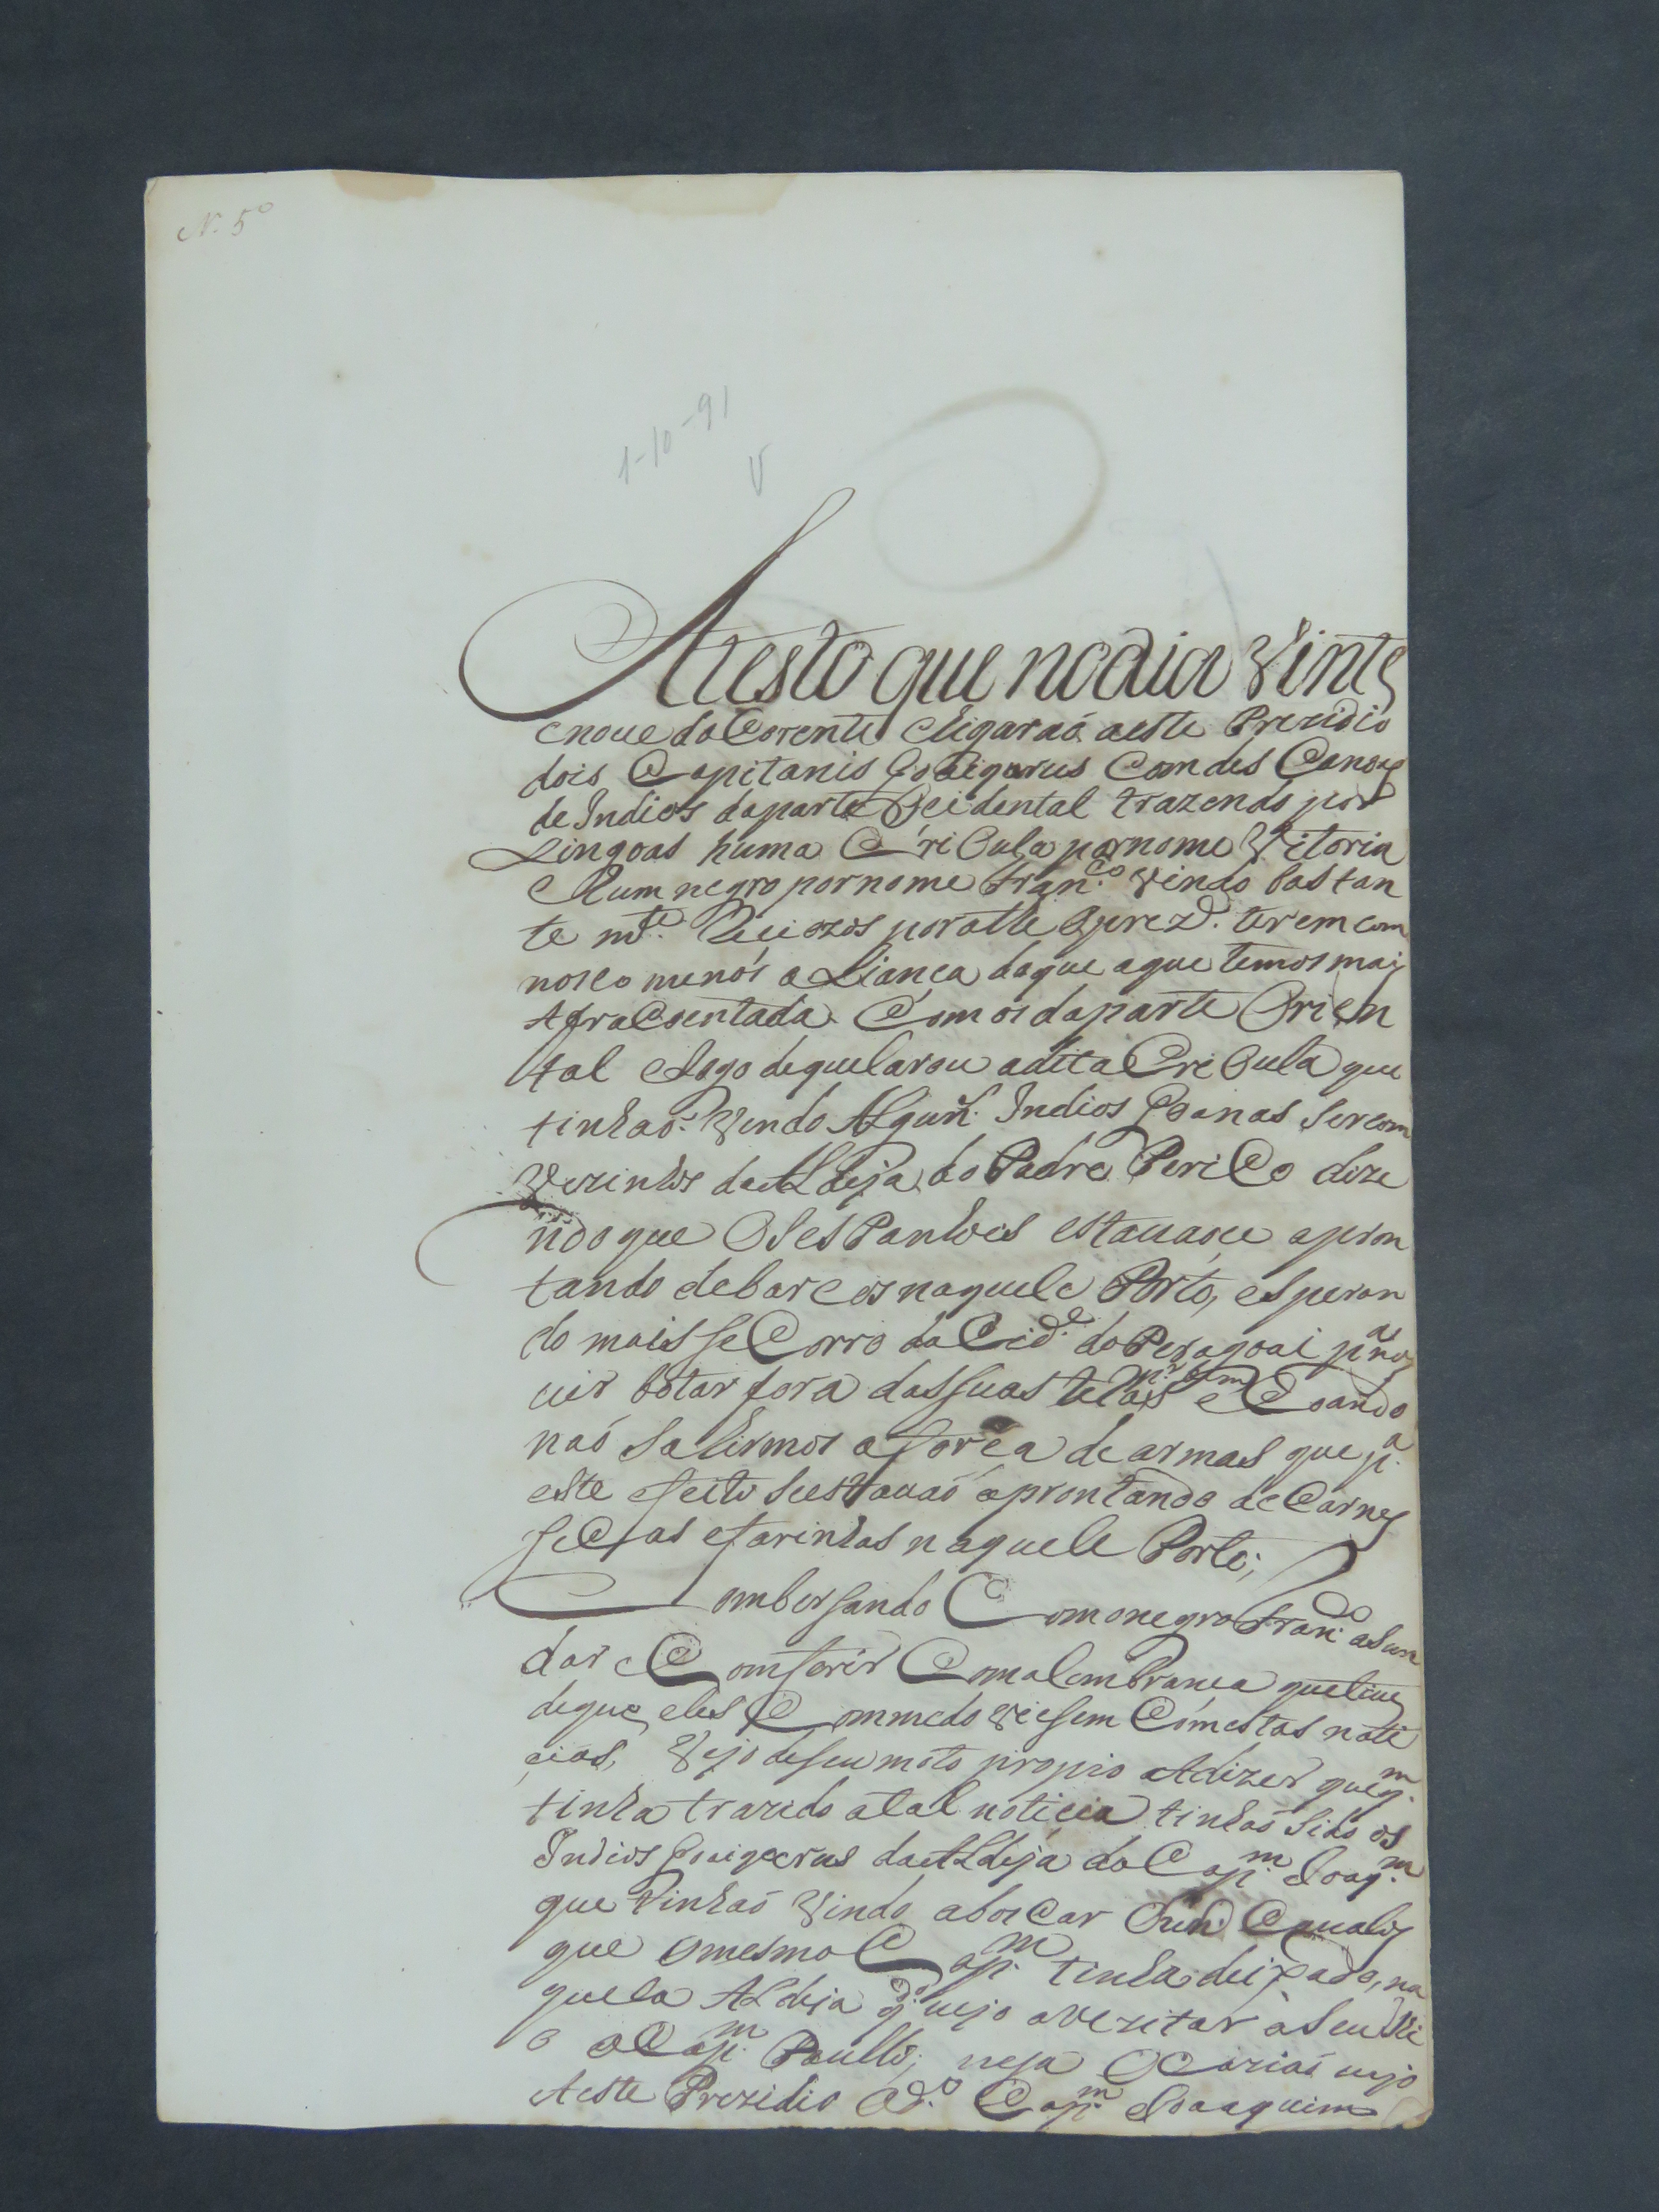 N. 5º
1-10-91
V
Atesto que no dia Vinte
e noue do Corente Chigaraó aeste Prezidio
dois Capitanis Goaigurus Com des Canoas
de Indios daparte Ocidental trazendo por
Lingoas huma Crioula por nome Vitoria
e hum negro por nome Fran.co Vindo bastan
te m.te Reciozos por athe oprez.e terem com
nosco menós a Liança do que aque temos mais
Afracsentada Com os daparte Orien
tal e Logo dequelarou adita Crioula que
tinhaõ Vindo Algun.s Indios Goanas Sercom
Vezinhos da Aldeja do Padre Perico dize
ndo que Os esPanhois estauaõce apron
tando de barcos naquele Porto, esperan
do mais seCorro da Cid.e do Peragoai p.a nos
uir botar fora das suas teras e Coando
naó Sahirmos aforca de armas que p.a
este efeito Seestauaó aprontando de Carnes
seCas efarinhas naquele Porto;
Combersando Com onegro Fran.co a Sun
dar e Comferir Com alembranca quetiue
deque eles Commedo viesem Cómestas noti
cias, Vejo deseu moto propio Adizer que q.m
tinha trazido atal noticia tinhaó Sido os
Indios Goaigurus da Aldeja do Cap.m Joaq.m
que tinhaó Vindo aboscar hun.s Caualos
que omesmo Cap.m tinha deixado, na
quela Aldeja q.do uejo avezitar àSeu Ti
o oCap.m Paullo; nesa Ocaziaó uejo
Aeste Prezidio O d.o Cap.m Joaaquim